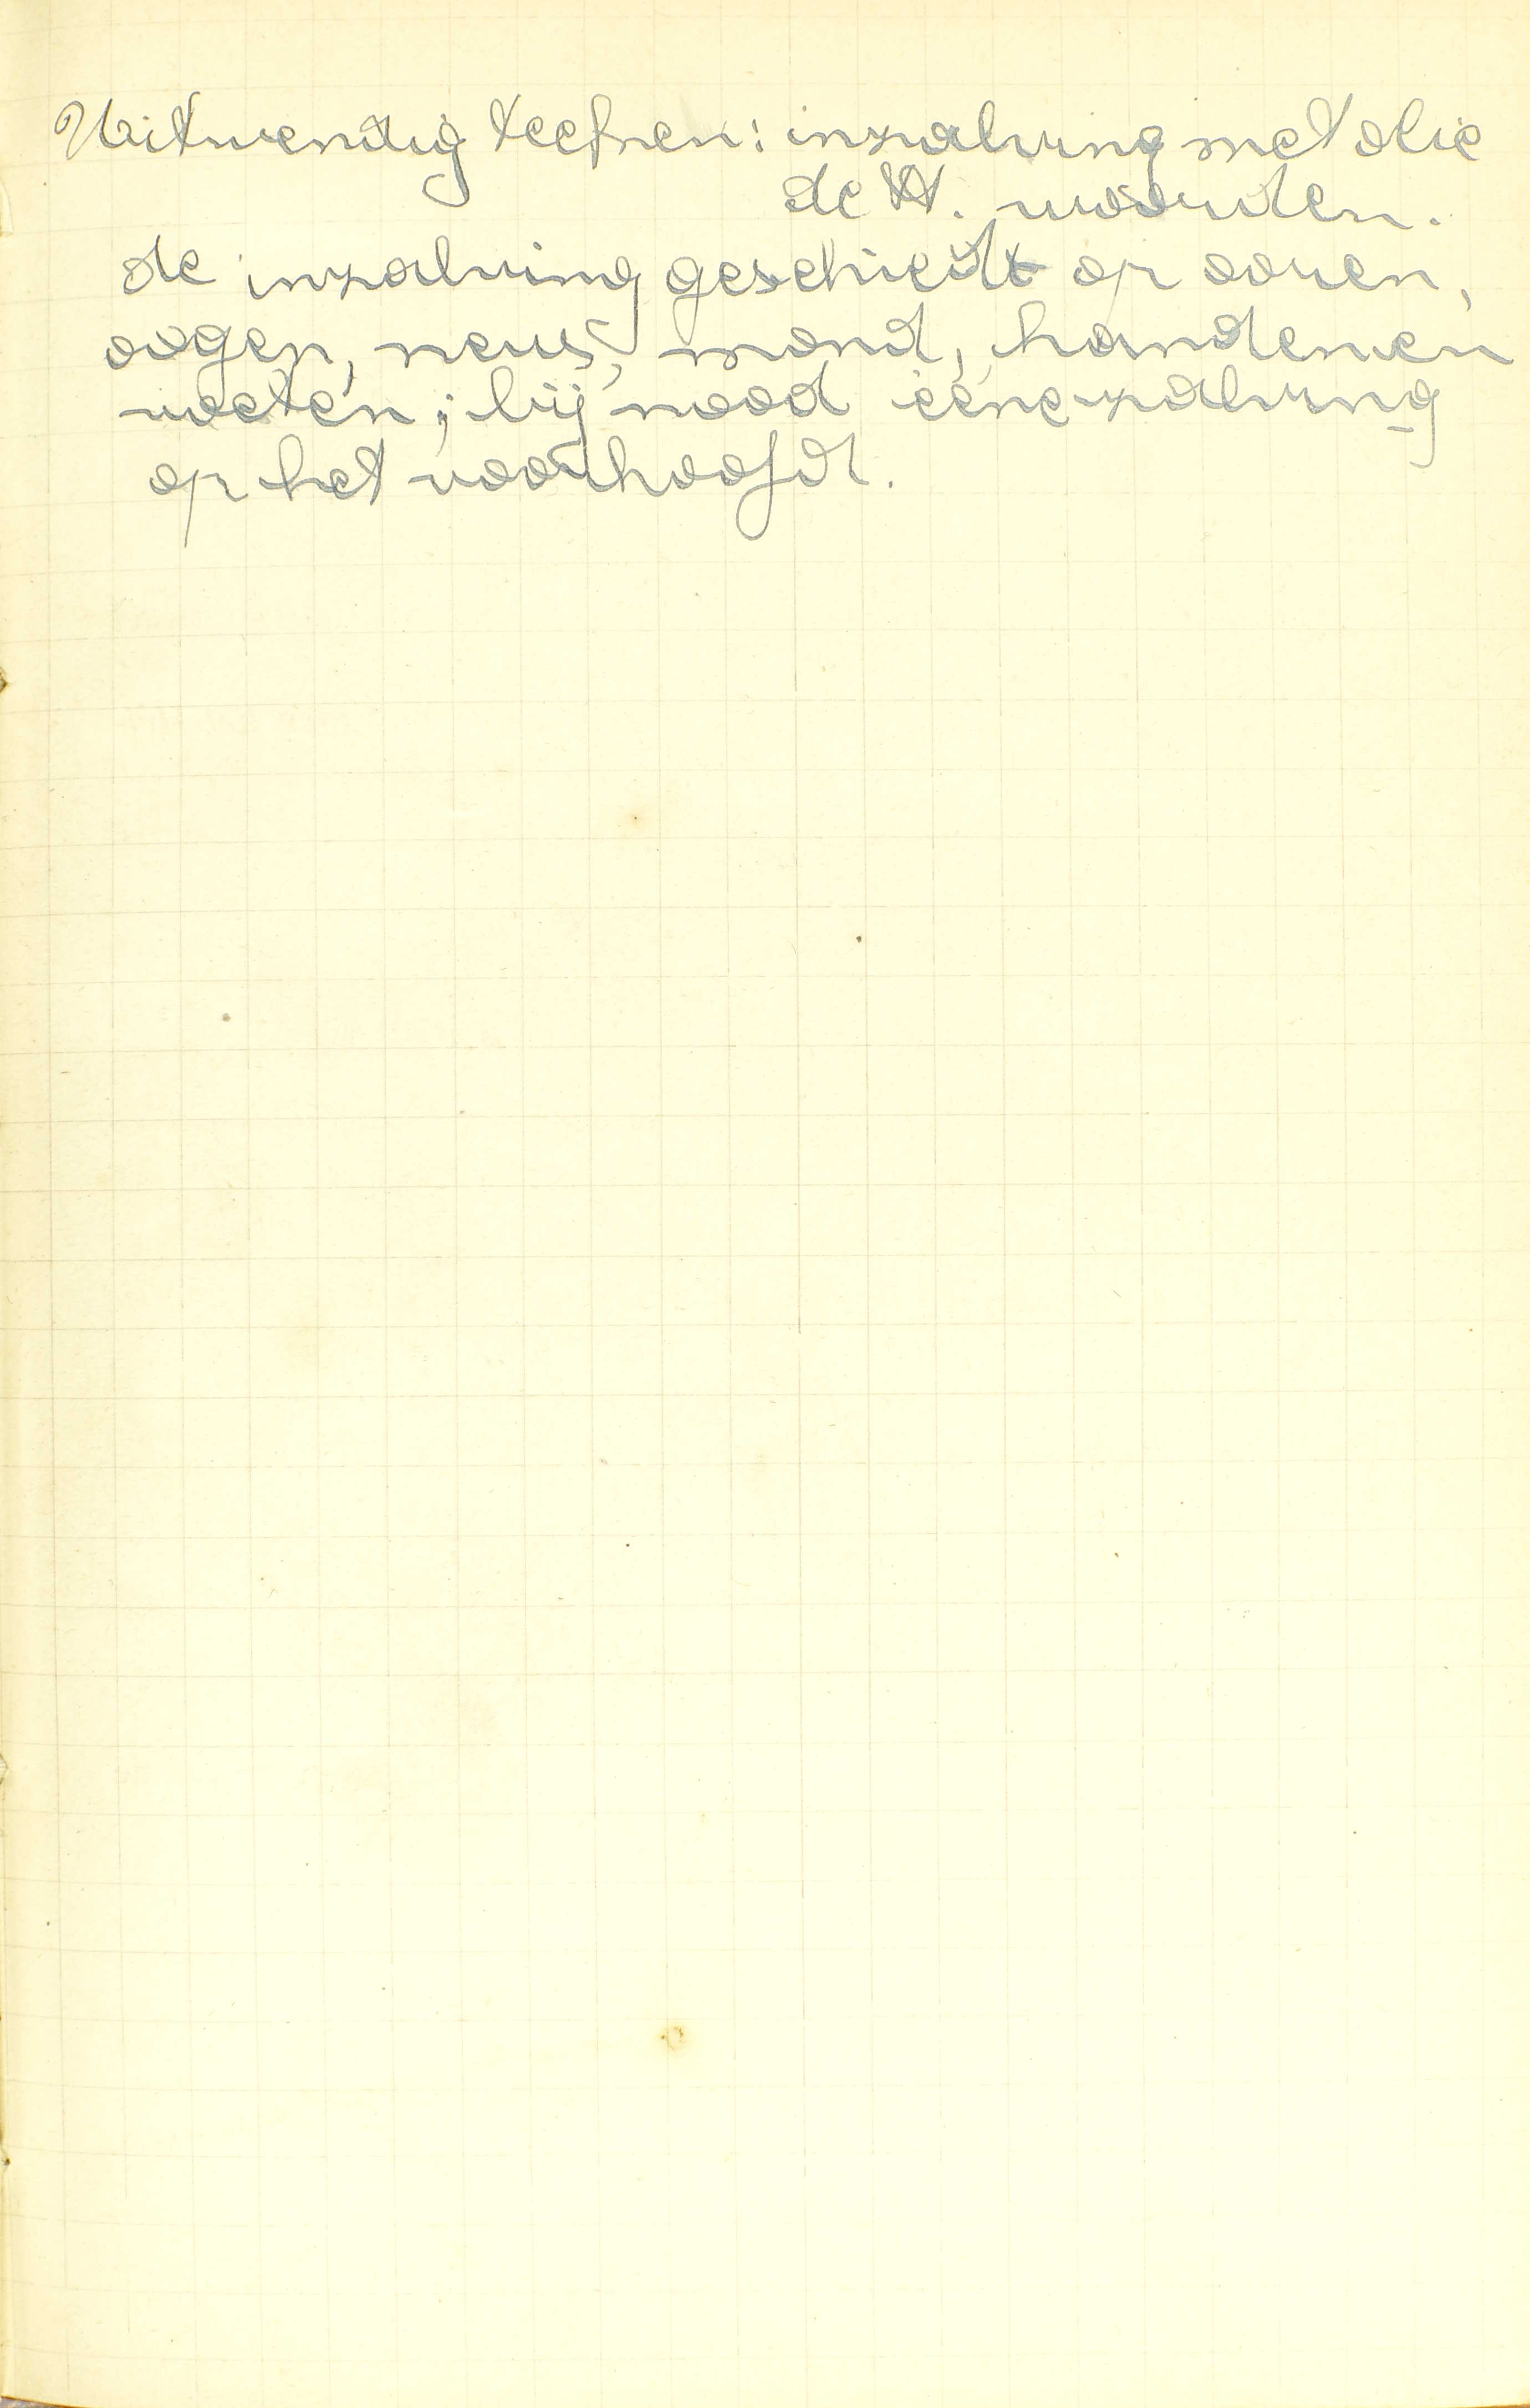 Uitwendig teeken: inzalving met olie
de H. woorden.
de inzalving geschiedt op ooren,
oogen, neus, mond, handen en
voeten; bij nood ééne zalving
op het voorhoofd.